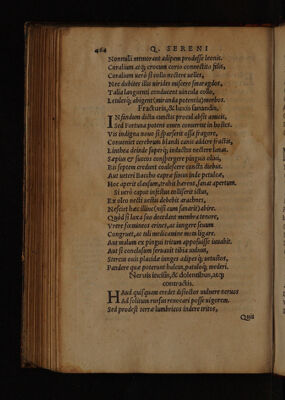 464 Q. SERENI
Nonnulli memorant adipem prodesse leonis.
Coralium atq; crocum corio connectito felis,
Coralium uerò si collo nectere uelles,
Nec dubites illi uirides miscere smaragdos,
Talia languenti conducent uincula collo,
Letalesq; abigent (miranda potentia) morbos.
Fracturis, & luxis sanandis.
Infandum dictu cunctis procul absit amicis,
Sed Fortuna potens omen conuertat in hostes.
Vis indigna nouo si sparserit ossa fragore,
Conueniet cerebrum blandi canis addere fractis,
Lintea deinde superq; inductas nectere lanas.
Sæpius et succos conspergere pinguis oliui,
Bis septem credunt coalescere cuncta diebus.
Aut ueteri Baccho capræ fimus inde petulcæ,
Hoc aperit clausum, trahit hærens, sanat apertum.
Si uerò caput infectus colliserit ictus,
Ex oleo necti uestis debebit arachnes,
Nesciet hæc illinc (nisi cum sanarit) abire.
Quòd si luxa suo decedant membra tenore,
Vrere fœmineos crines, ac iungere seuum
Congruet, ac tali medicamine membra ligare.
Aut malum ex pingui tritum apposuisse iuuabit.
Aut si conclusum seruauit tibia uulnus,
Stercus ouis placidæ iunges adipesq; uetustos,
Pandere quæ poterunt hulcus, patuloq; mederi.
Neruis incisis, & dolentibus, atq;
contractis.
Haud quisquam credet disiectos uulnere neruos
Ad solitum rursus reuocari posse uigorem.
Sed prodest terræ lumbricos indere tritos,